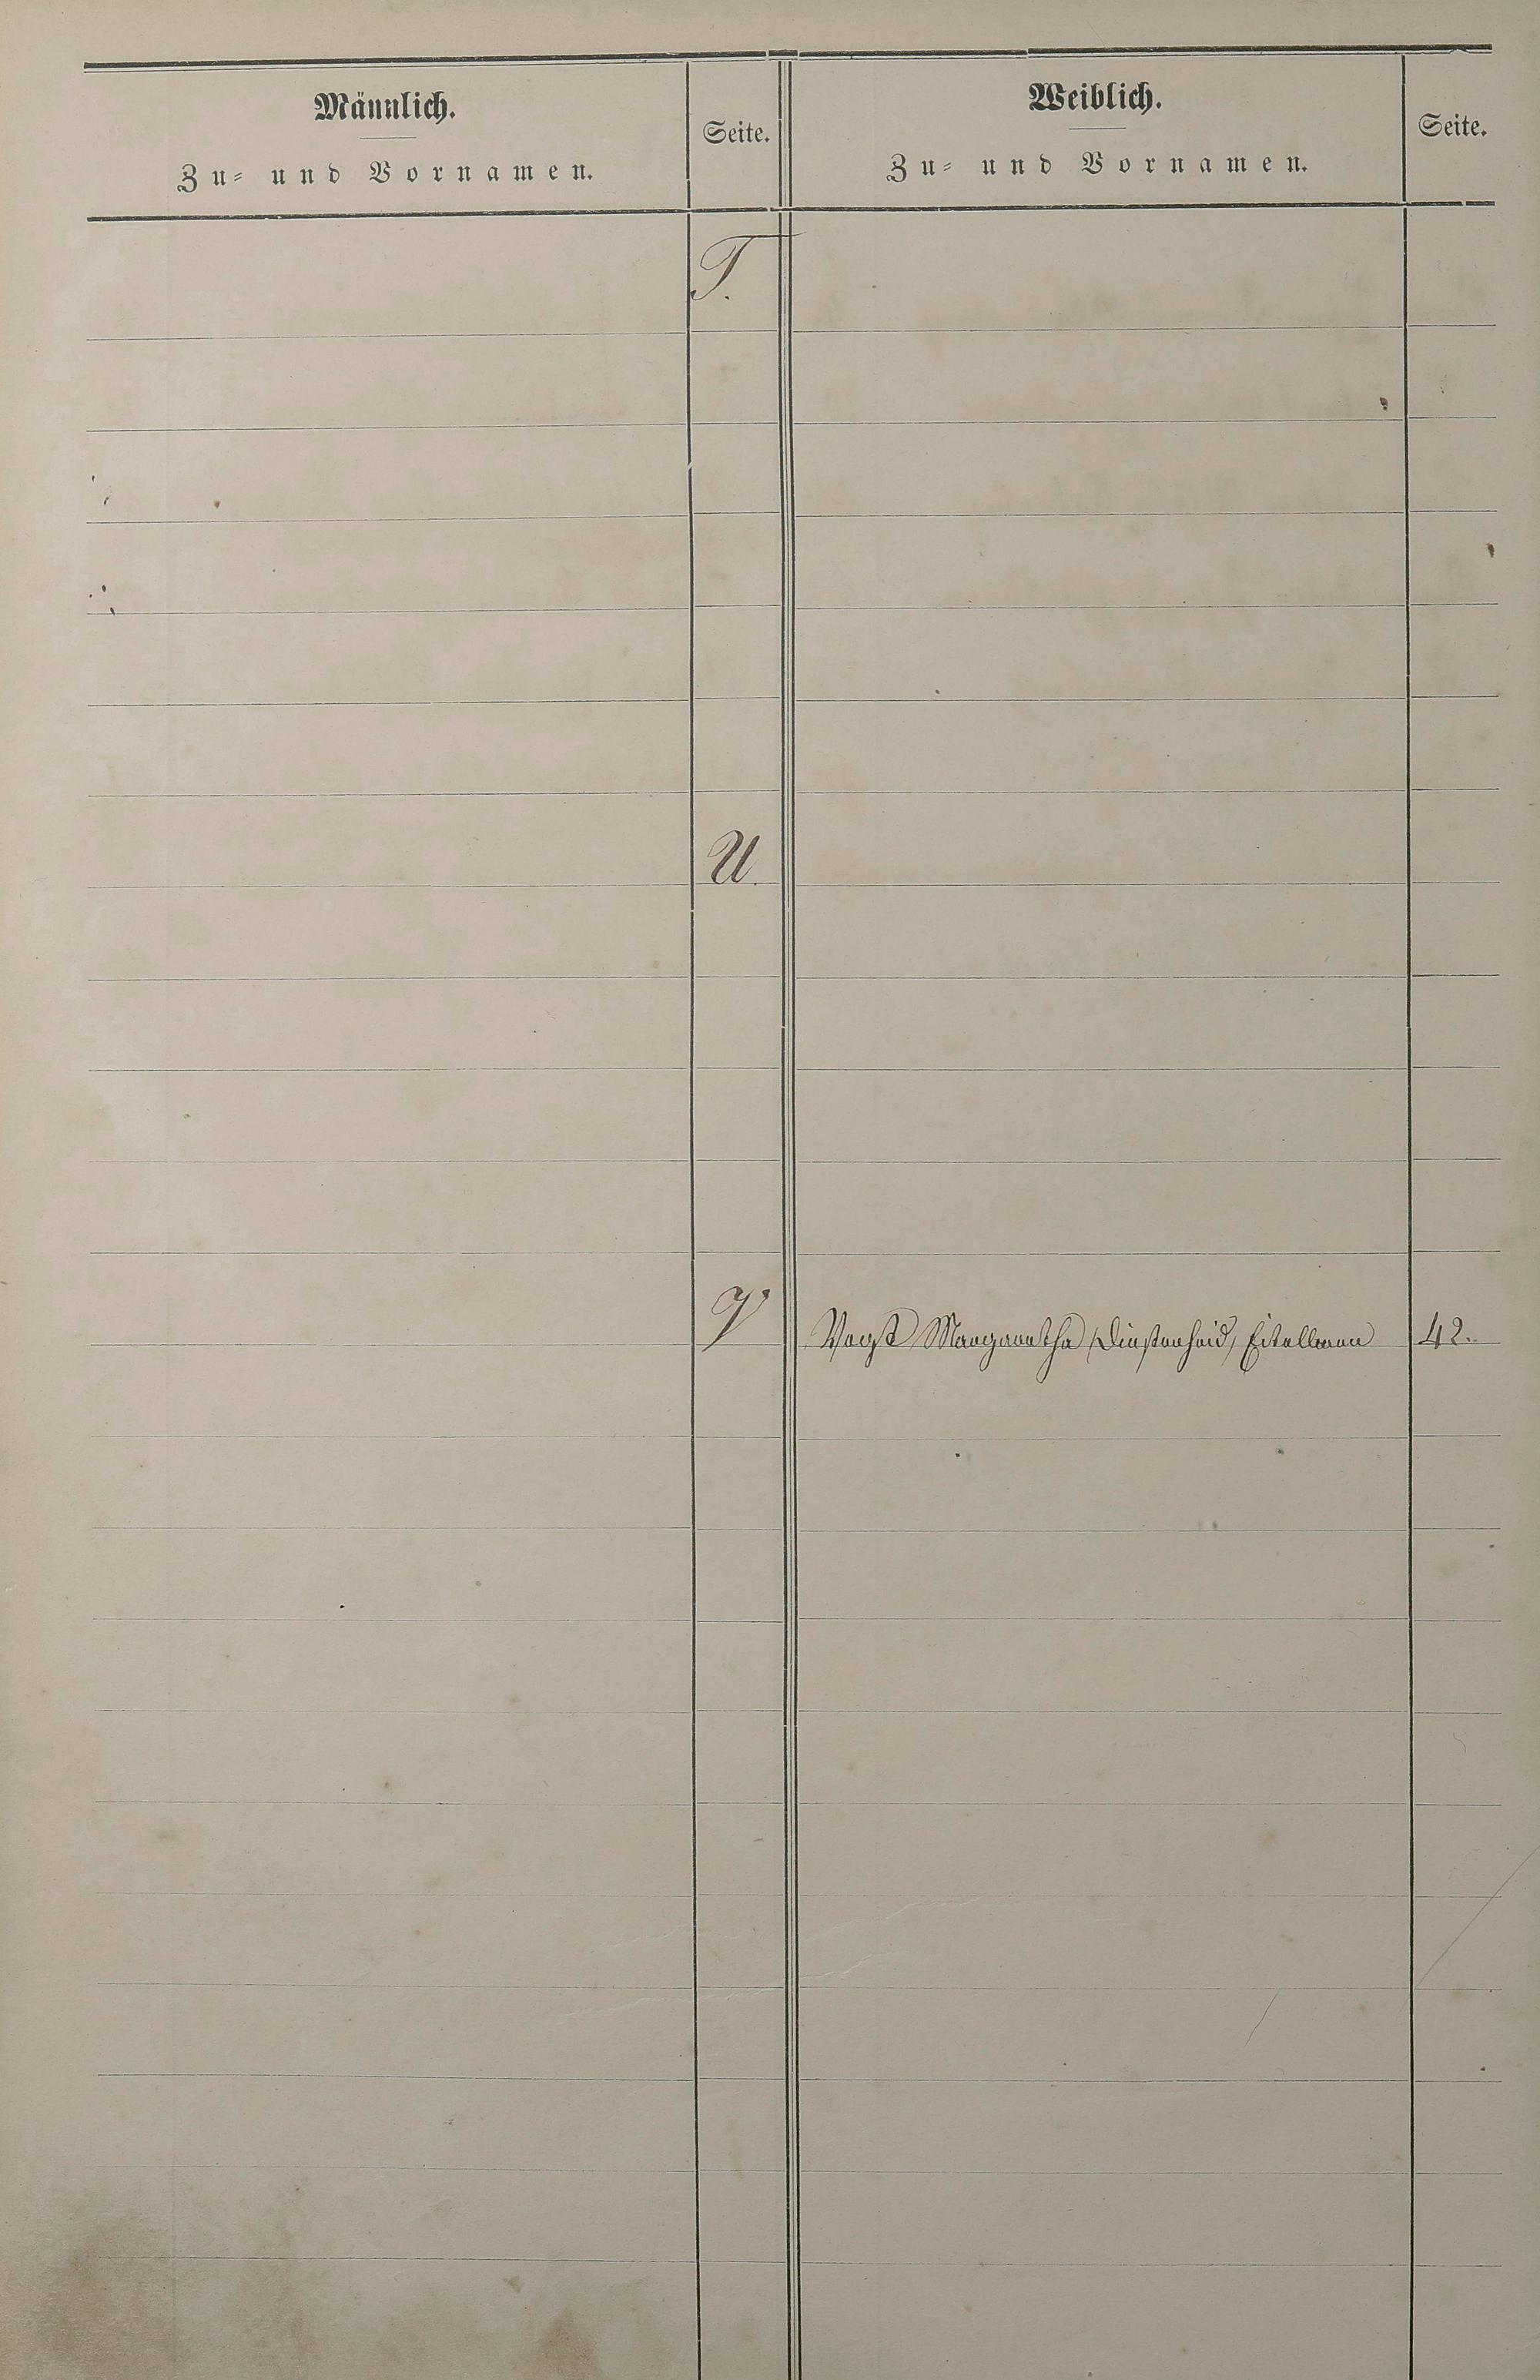 Männlich.
Zu- und Vornamen.
Seite.
Weiblich.
Zu- und Vornamen.
Seite.
T.
U.
V
Vogt Margaretha 42.